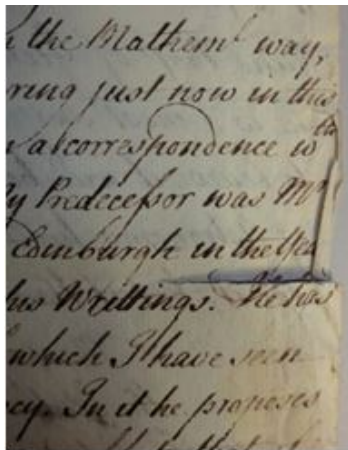 the Mathem^l way,
ring just now in this
a correspondence w^th
My Predecessor was M^r
Edinburgh in the Yea
his Writtings. He has
which I have seen
cy. In it he proposes